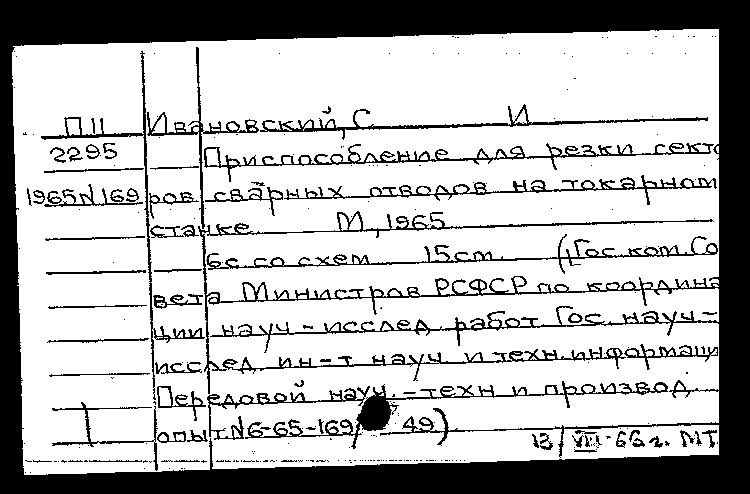 П11 Ивановский, С И
2295 Приспособление для резки секто
1965N169 ров сварных отводов на токарном
станке М, 1965
6с со схем 15см (Гос. ком. Со
вета Министров РСФСР по координа
ции науч-исслед работ Гос. науч.-
исслед ин-т науч и техн. информаци
Передовой науч.-техн и производ.
опыт. N6-65-169/49)
13/VIII-66г. МТ